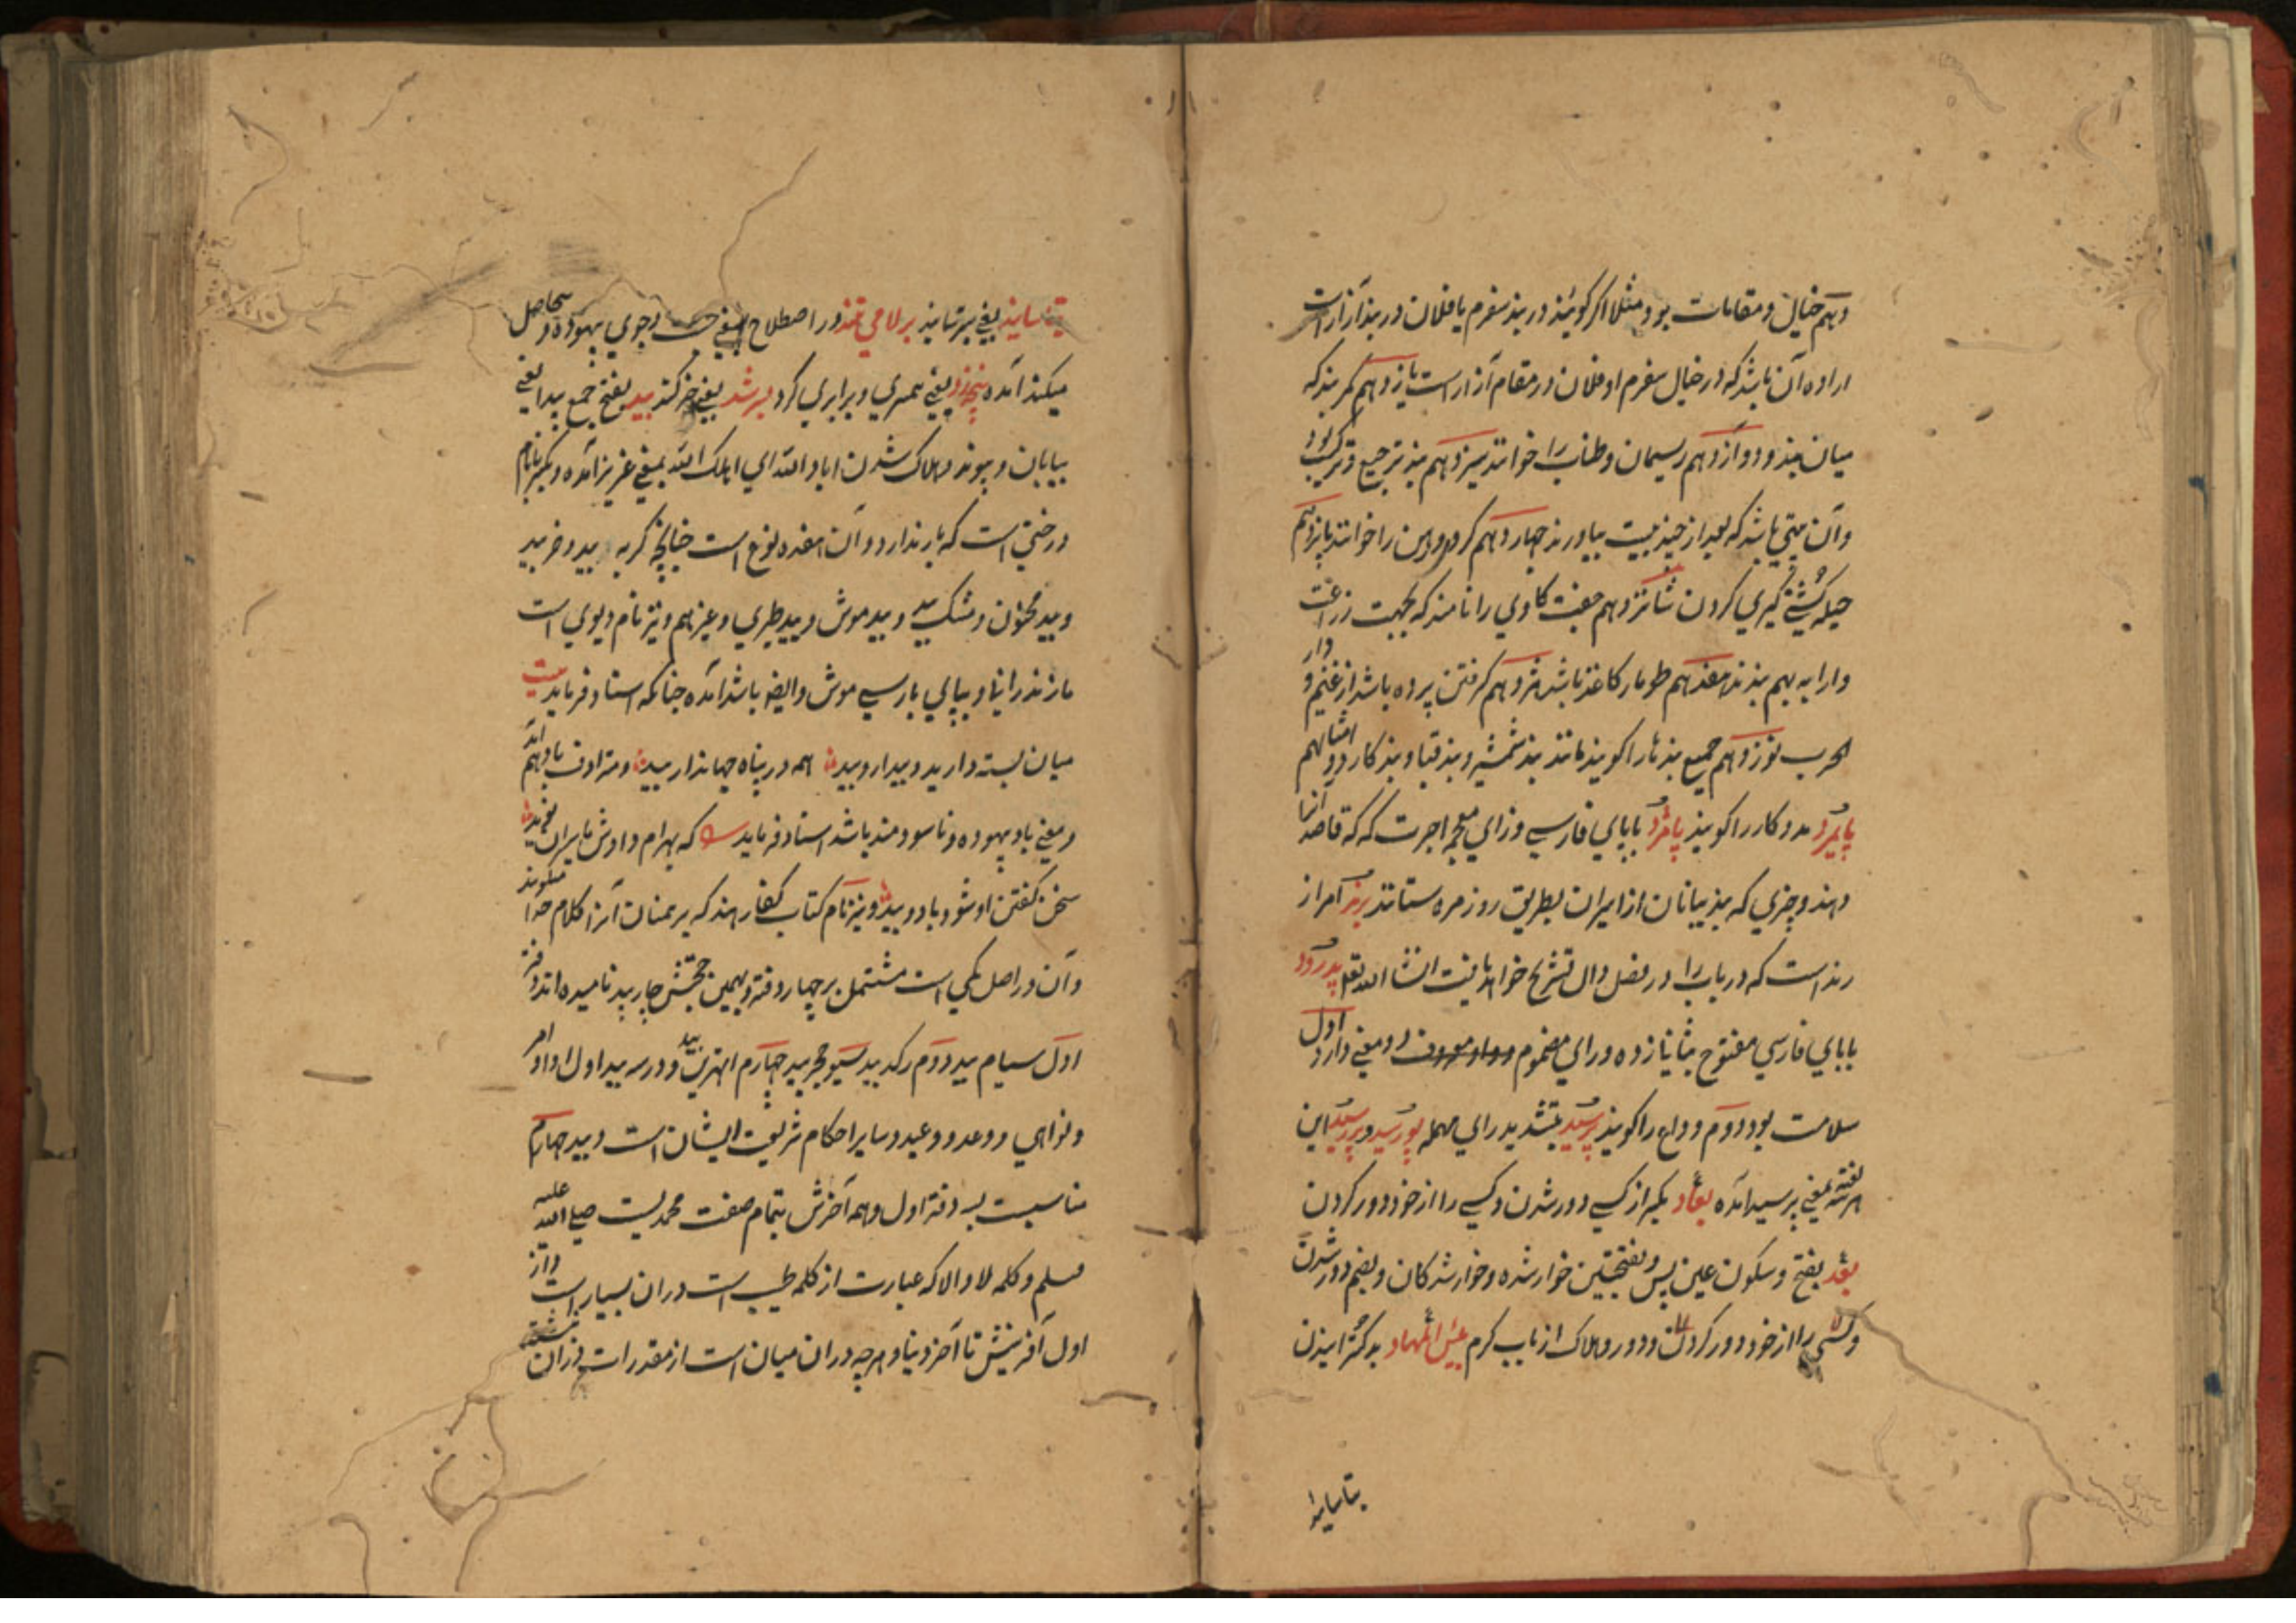 دهم خیال و مقامات بود مثلا اکر کویند در بند سفرم یا فلان در بند آزار است
اراده آن باشد که در خیال سفرم او فلان در مقام آزار است یازدهم کمر بند که
میان بند و دوازدهم ریسمان و طناب را خوانند سیزدهم بند ترجیع و ترکیب بود
و آن بیتی باشد که بعد از چند بیت بیاورند چهاردهم کرو و رهن را خوانند پانزدهم
حیله کشتی گیری کردن شانزدهم جفت کاوی را نامند که بجهت زراعت
و ارابه بهم بندند هفدهم طومار کاغذ باشد هژدهم کرفتن برده باشد از غنیم و دار
الحرب نوزدهم جمیع بندها را کویند مانند بند شمشیر و بند قبا و بند کارد و امثالهم
پایمرد مددکار را کویند پامزد ببای فارسی و زای معجمه اجرت که که قاصد آنرا
دهند و چیزی که بندیبانان از اسیران بطریق روزمره ستانند برند امر از
رنداست که در باب را در فصل دال تشریح خواهد یافت انشا الله تعالی پدرود
ببای فارسی مفتوح بثانیازده و رای مضموم و واو معروف دو معنی دارد اول
سلامت بود دوم وداع را کویند پرسید بتشدید رای مهمله پورسید و پرسید این
هر سه لغت بمعنی پرسید آمده بعاد یکبر از کسی دور شدن و کسی را از خود دور کردن
بعد بفتح و سکون عین پس و بفتحتین خوارشده و خوارشدکان و بضم دور شدن
و کسی را از خود دور کردن و دور و هلاک از باب کرم بئس المهاد بد کسترانیدن
بتاساند
بتاساند یعنی بیرتابند برلامی تند در اصطلاح بمعنی جست و جوی بیهوده و بیحاصل
میکند آمده پنجه زد یعنی همسری و برابری کرد برشد یعنی حرکند بید بفتح جمع بیدا یعنی
بیابان و پیوند و هلاک شدن اباد الله ای اهلک الله بمعنی غریز آمده و بکسر با نام
درختی است که بار ندارد و آن هفده نوع است چنانچه کربه بید و خر بید
و بید مجنون و مشک بید و بید موش و بید طبری و غیرهم و نیز نام دیوی است
مازندرانیا و بیای پارسی موش و ایضا باشد آمده چنانکه استاد فرماید بیت
میان بسته دارید و بیدار بید همه در پناه جهاندار بید و مترادف باد هم آید
و معنی باد بیهوده و ناسودمند باشد استاد فرماید که بهرام دادش بایران نوید
سخن کفتن او شود باد و بید و نیز نام کتاب کفار هند که برهمنان آنرا کلام خدا میکویند
و آن در اصل یکی است مشتمل بر چهار دفتر و بهمین جهتش چار بید نامیده اند دفتر
اول سیام بید دوم رکد بید سیوم ججر بید چهارم اتهرین بید و در سه بید اول او امر
و نواهی و وعد و وعید و سایر احکام شریعت ایشان است و بید چهارم
مناسبت بسه دفتر اول و همه آخرش بتمام صفت محمدیست صلی الله علیه
وسلم و کلمه لا و الا که عبارت از کلمه طیب است در ان بسیار است و از
اول آفرینش تا آخر دنیا و هر چه در ان میان است از مقدرات در ان